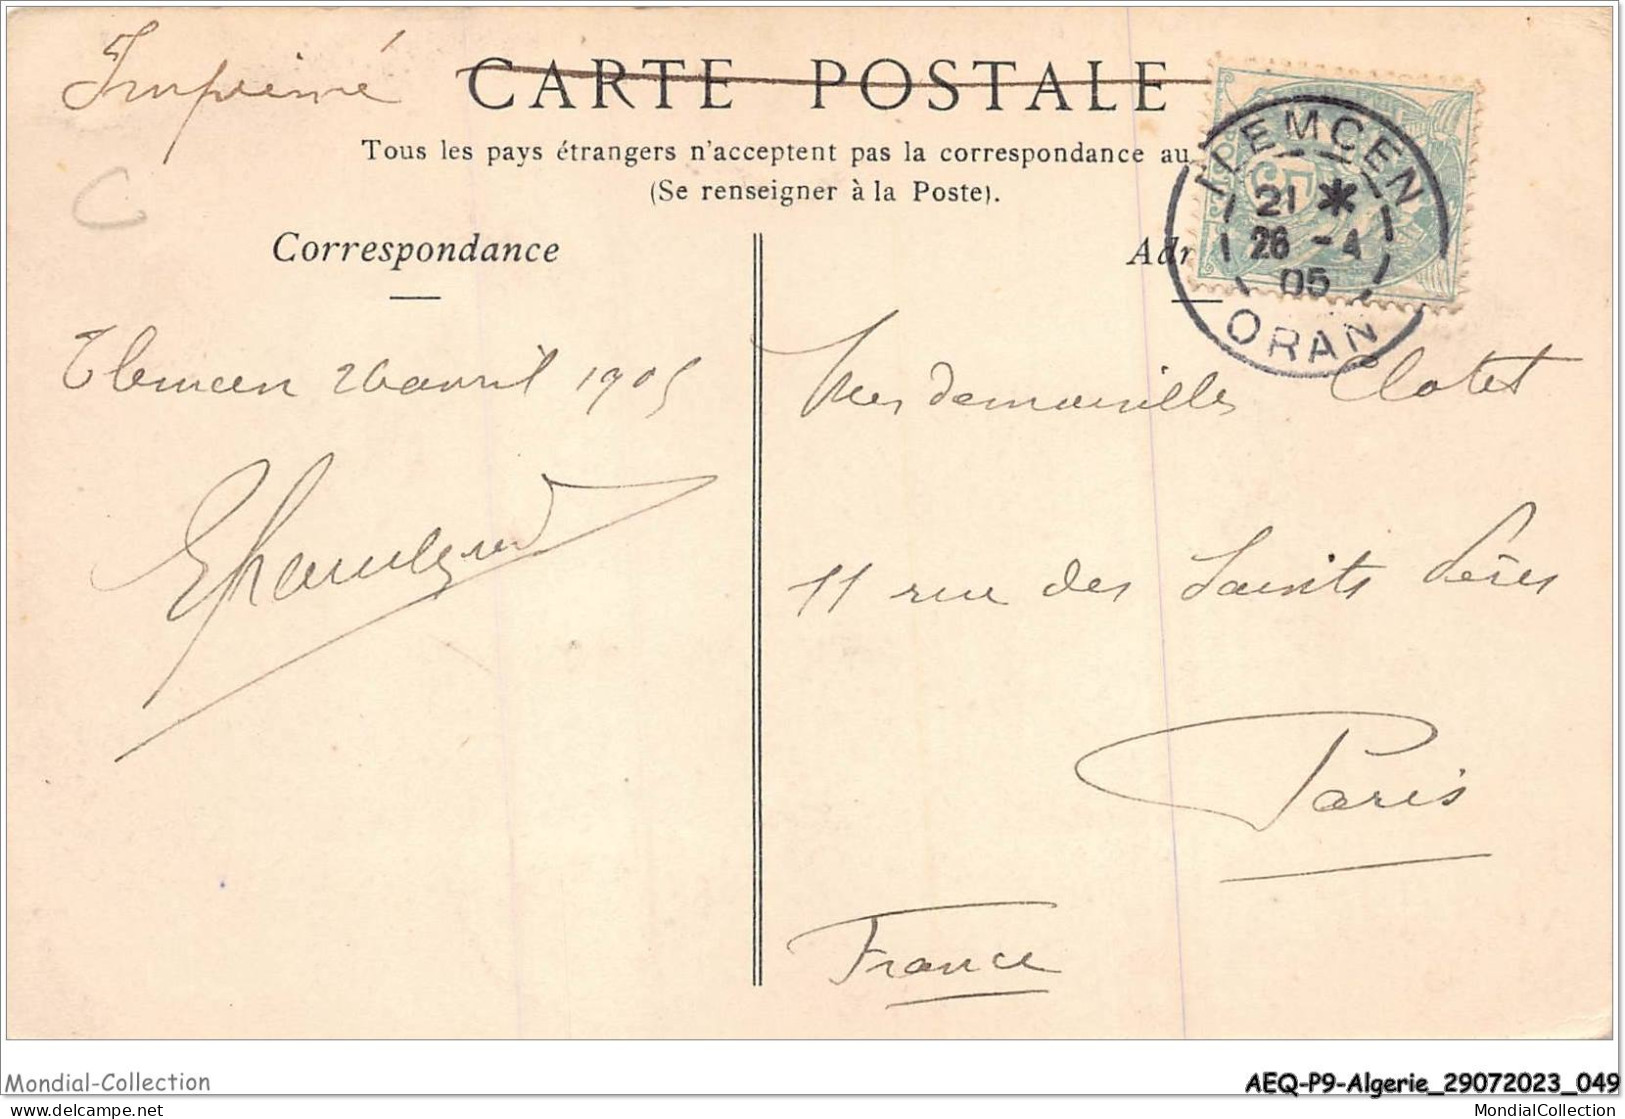 Imprimé
CARTE POSTALE
Tous les pays étrangers n'acceptent pas la correspondance au
(Se renseigner à la Poste).
Correspondance
Adr
TLEMCEN
21 *
26 - 4
05
ORAN
5
Tlemcen 26 avril 1905
Mesdemoiselles Clotet
11 rue des Saints Pères
Paris
France
Mondial-Collection
AEQ-P9-Algerie_29072023_049
delcampe.net
MondialCollection